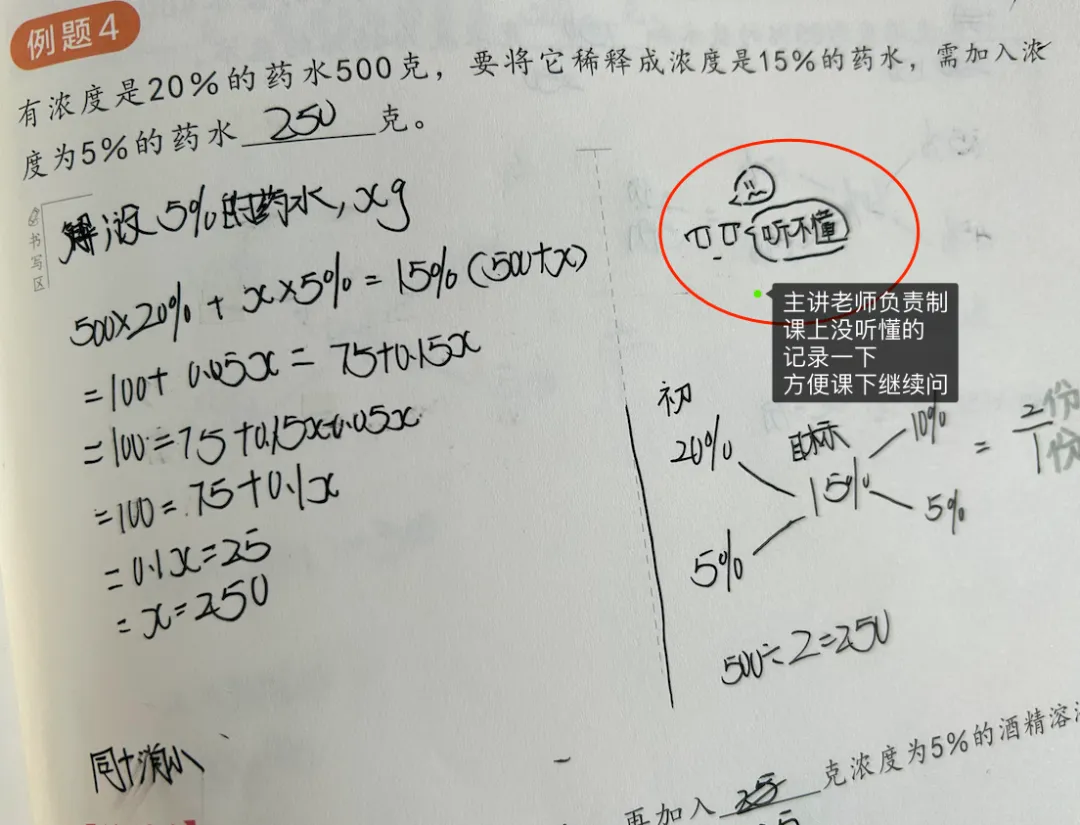 例题4
有浓度是20%的药水500克，要将它稀释成浓度是15%的药水，需加入浓
度为5%的药水 250 克。
书写区
解设5%的药水,xg
500×20%+x×5%=15%(500+x)
=100+0.05x=75+0.15x
=100=75+0.15x-0.05x
=100=75+0.1x
=0.1x=25
=x=250
同+消小
听不懂
主讲老师负责制
课上没听懂的
记录一下
方便课下继续问
初
20% 目标 10% = 2份
15% 1份
5% 5%
500÷2=250
再加入 克浓度为5%的酒精溶